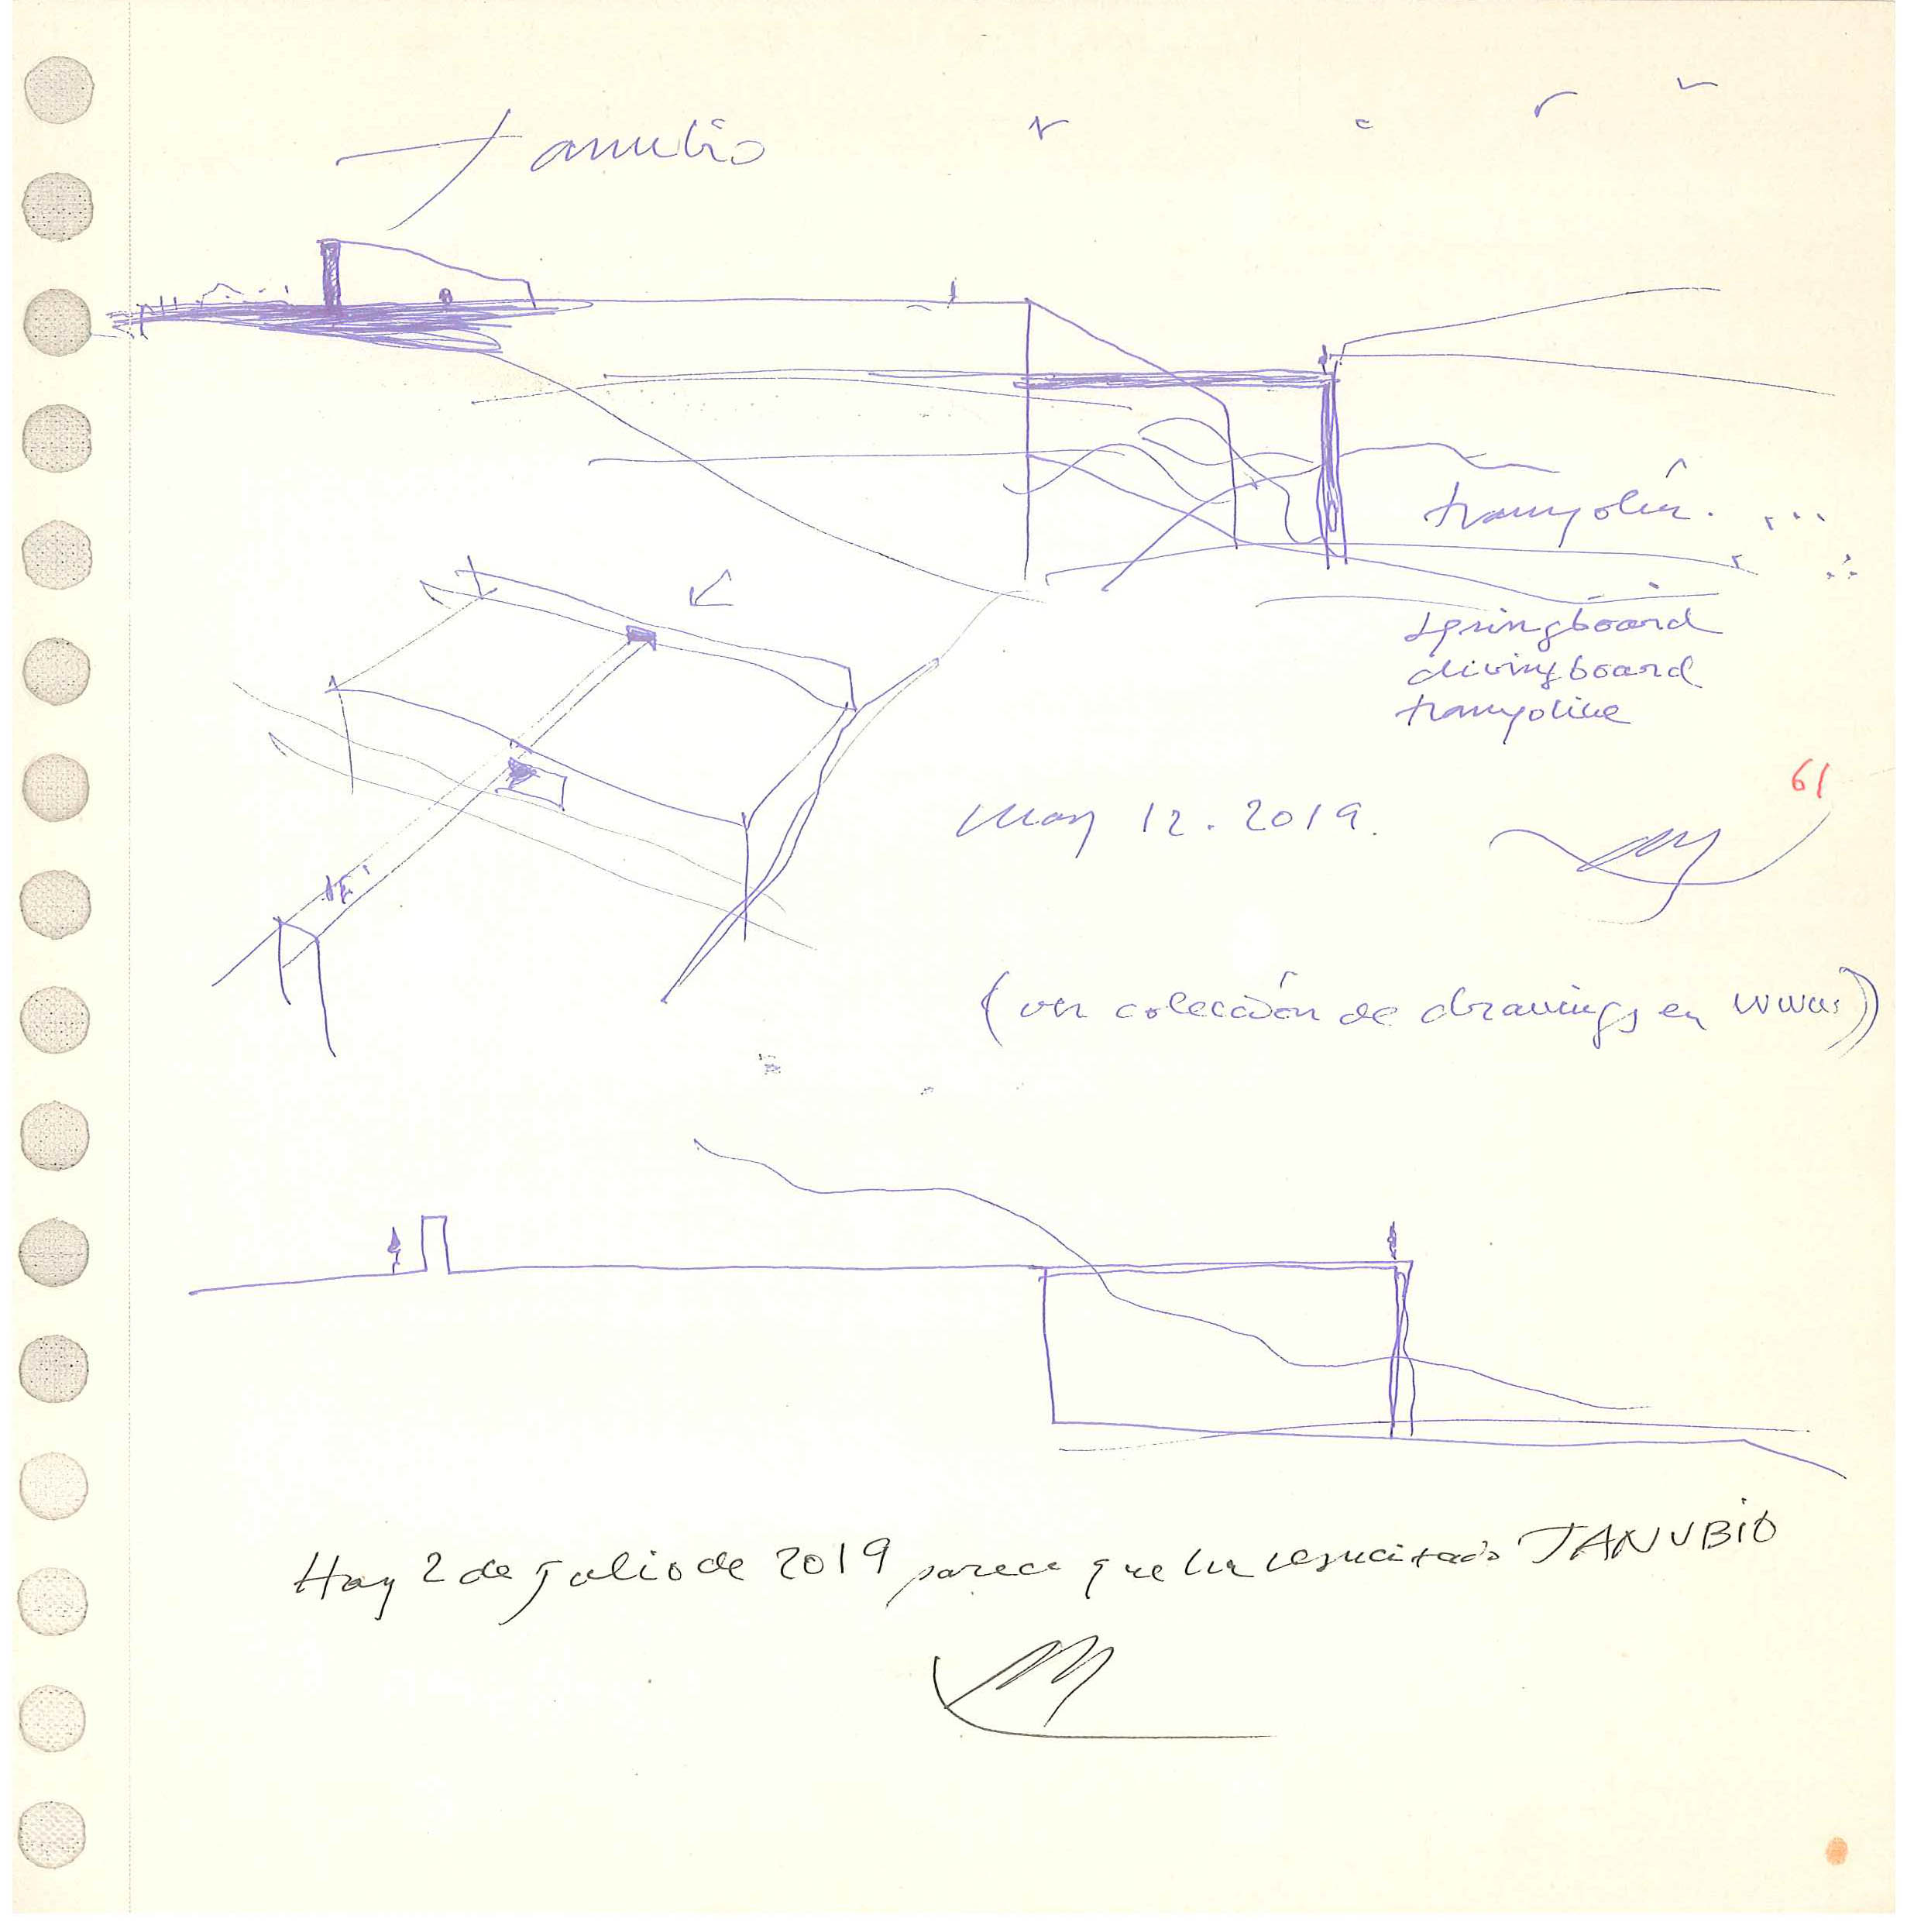 Janubio
trampolín. ...
springboard
divingboard
trampoline
61
May 12. 2019.
(ver colección de drawings en
Hoy 2 de julio de 2019 parece que ha resucitado JANUBIO